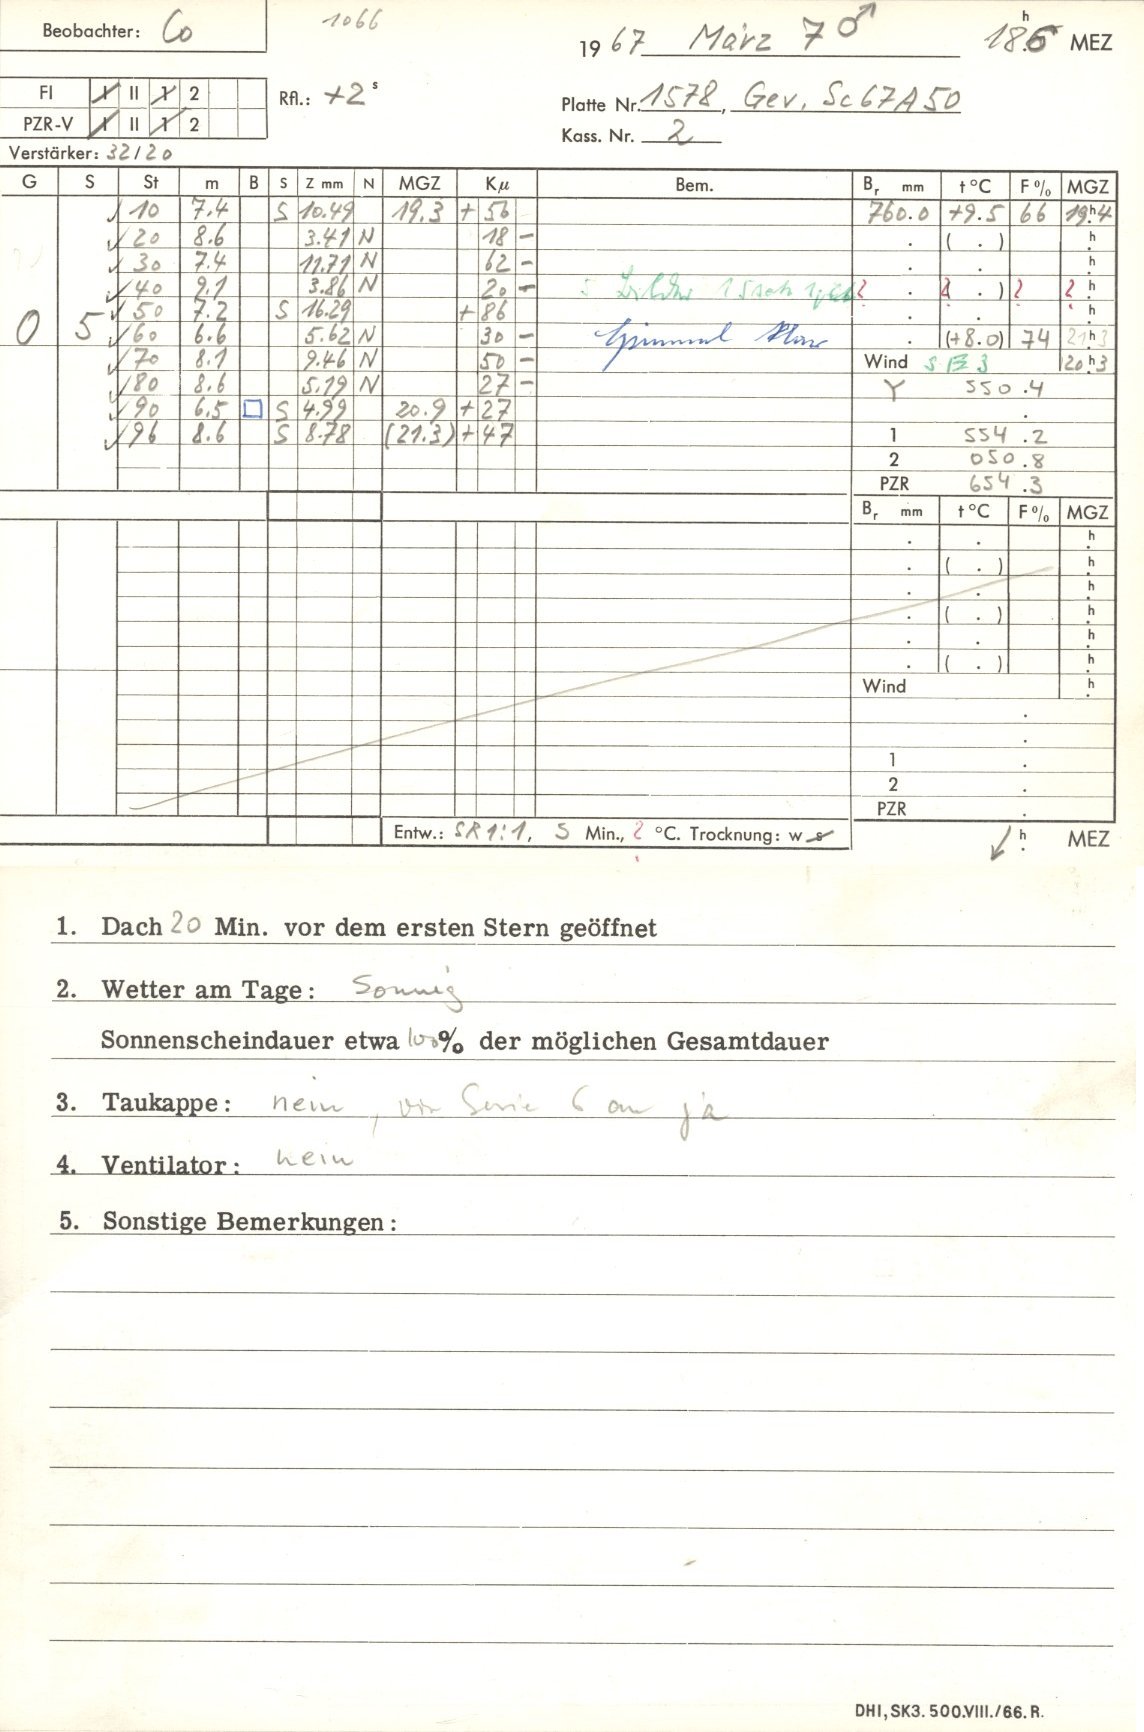 Beobachter: Co
1066
1967 März 7 ♂ 18.6 h MEZ
FI I II 1 2
Rfl.: +2 s
Platte Nr. 1578, Gev. Sc67A50
PZR-V I II 1 2
Kass. Nr. 2
Verstärker: 32/20
G S St m B S Z mm N MGZ Kμ Bem. Br mm t °C F % MGZ
10 7.4 S 10.49 19.3 + 56 760.0 +9.5 66 19h4
20 8.6 3.41 N 18 - . ( . ) h
30 7.4 11.71 N 62 - . . h
40 9.1 3.86 N 20 - . . ) h
50 7.2 S 16.29 + 86 . . h
0 5 60 6.6 5.62 N 30 - . (+8.0) 74 21h3
70 8.1 9.46 N 50 - Wind SE 3 20h3
80 8.6 5.19 N 27 - Y 550.4
90 6.5 □ S 4.99 20.9 + 27 .
96 8.6 S 8.78 (21.3) + 47 1 554.2
2 050.8
PZR 654.3
Br mm t °C F % MGZ
. . h
. ( . ) h
. . h
. ( . ) h
. . h
. ( . ) h
Wind h
.
.
1 .
2 .
PZR .
Entw.: SR 1:1, 5 Min., ? °C. Trocknung: w s
h MEZ
1. Dach 20 Min. vor dem ersten Stern geöffnet
2. Wetter am Tage: Sonnig
Sonnenscheindauer etwa 100% der möglichen Gesamtdauer
3. Taukappe: nein, von Serie 6 an ja
4. Ventilator: nein
5. Sonstige Bemerkungen:
DHI, SK3. 500.VIII./66. R.